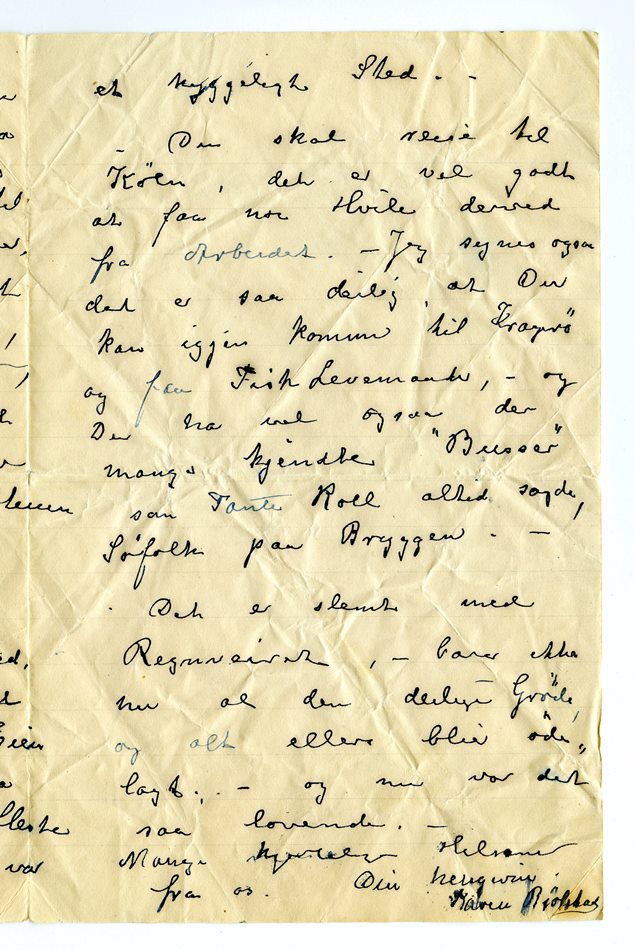 et hyggeligt Sted. -
- Du skal reise til
Köln, det er vel godt
at faa noe Hvile derved
fra Arbeidet. - Jeg synes ogsaa
det er saa deilig, at Du
kan igjen komme til Kragerö
og faa Fisk Levemaade, - og
Du har vel ogsaa der
mange kjendte "Busser"
som Tante Roll altid sagde,
Söfolk paa Bryggen. -
Det er slemt med
Regnveiret, - bare ikke
nu al den deilige Gröde,
og alt ellers blir öde„
lagt. - og nu var det
saa lovende. -
Mange hjertelige Hilsener
fra os. Din hengivne
Karen Bjölstad